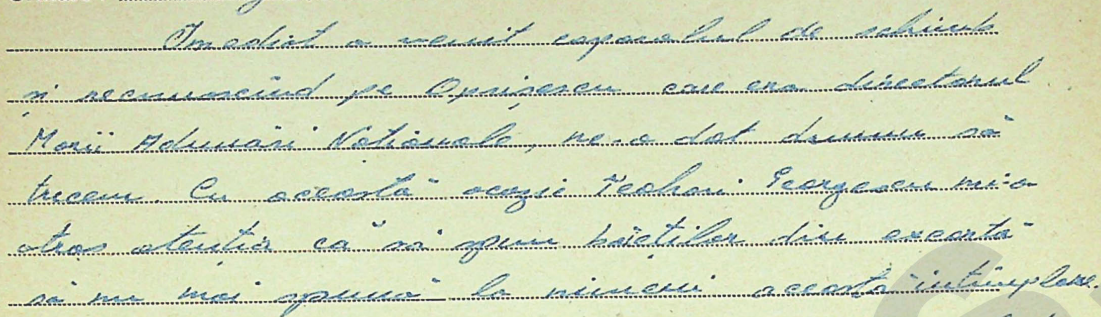 Imediat a venit caporalul de schimb
și recunoscînd pe Oprișescu care era directorul
Marii Adunări Naționale, ne-a dat drumu să
trecem. Cu această ocazie Teohari Georgescu mi-a
atras atenția că să spun băieților din excortă
să nu mai spună la nimeni această întîmplare.